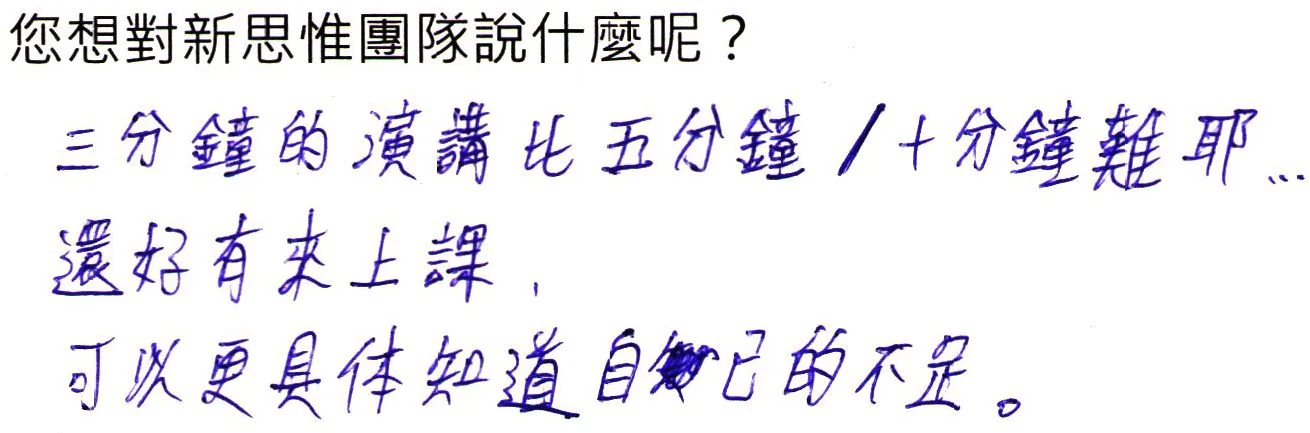 您想對新思惟團隊說什麼呢？
三分鐘的演講比五分鐘/十分鐘難耶...
還好有來上課,
可以更具体知道自己的不足。